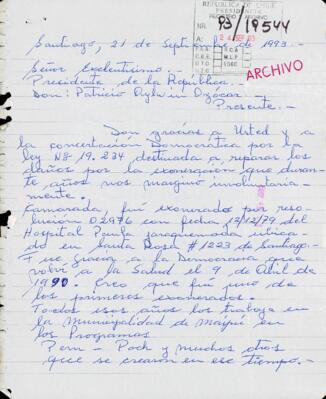 REPUBLICA DE CHILE
PRESIDENCIA
REGISTRO Y ARCHIVO
NR. 93/19544
A: 24 SEP 93
ARCHIVO
Santiago, 21 de Septiembre de 1993.-
Señor Exelentisimo.-
Presidente de la República.
Don: Patricio Aylwin Azócar.-
Presente.-
Don gracias a Usted y a
la consertación Democratica por la
ley Nº 19.234 destinada a reparar los
daños por la exoneración que duran-
te años nos marginó involuntaria-
mente.-
Camarada, fuí exonerado por reso-
lución 02976 con fecha, 12/12/79 del
Hospital ubica-
do en Santa Rosa # 1223 de Santiago.-
Fue gracias a la Democracia que
volví a la Salud el 9 de Abril de
1990. Creo que fuí uno de
los primeros exonerados.-
Todos esos años los trabaje en
la Municipalidad de Maipú en
los Programas
Pem - Poch y muchos otros
que se crearon en ese tiempo.-